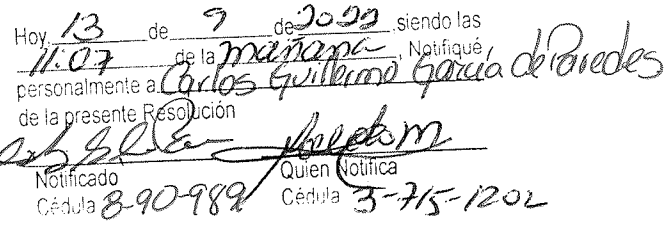 Hoy, 13 de 9 de 2022 siendo las
11:07 de la mañana, Notifiqué
personalmente a Carlos Guillermo García de Paredes
de la presente Resolución
Notificado Quien Notifica
Cédula 8-90-989 Cédula 3-715-1202